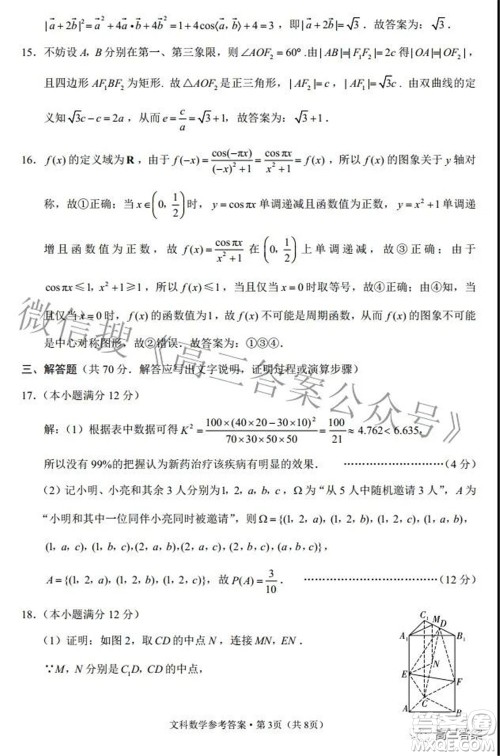 |a+2b|²=a²+4a·b+4b²=1+4cos⟨a,b⟩+4=3，即|a+2b|=√3．故答案为：√3．
15．不妨设A，B分别在第一、第三象限，则∠AOF₂=60°.由|AB|=|F₁F₂|=2c得|OA|=|OF₂|，
且四边形AF₁BF₂为矩形. 故△AOF₂是正三角形，|AF₂|=c，|AF₁|=√3c. 由双曲线的定
义知√3c-c=2a，从而e=c/a=√3+1，故答案为：√3+1．
16．f(x)的定义域为R，由于f(-x)=cos(-πx)/((-x)²+1)=cosπx/(x²+1)=f(x)，所以f(x)的图象关于y轴对
称，故①正确；当x∈(0, 1/2)时，y=cosπx单调递减且函数值为正数，y=x²+1单调递
增且函数值为正数，故f(x)=cosπx/(x²+1)在(0, 1/2)上单调递减，故③正确；由于
cosπx≤1，x²+1≥1，所以f(x)≤1，当且仅当x=0时取等号，故④正确；由④知，当
且仅当x=0时，f(x)的函数值为1，故f(x)不可能是周期函数，从而f(x)的图象不可能
是中心对称图形，故②错误．故答案为：①③④．
三、解答题（共70分．解答应写出文字说明，证明过程或演算步骤）
17．（本小题满分12分）
解：（1）根据表中数据可得K²=100×(40×20-30×10)²/(70×30×50×50)=100/21≈4.762<6.635，
所以没有99%的把握认为新药治疗该疾病有明显的效果．……………………（4分）
（2）记小明、小亮和其余3人分别为1，2，a，b，c，Ω为“从5人中随机邀请3人”，A为
“小明和其中一位同伴小亮同时被邀请”，则Ω={(1，2，a)，(1，2，b)，(1，2，c)，(1，a，b)，
(1，a，c)，(1，b，c)，(2，a，b)，(2，a，c)，(2，b，c)，(a，b，c)}，
A={(1，2，a)，(1，2，b)，(1，2，c)}，故P(A)=3/10．……………………（12分）
18．（本小题满分12分）
（1）证明：如图2，取CD的中点N，连接MN，EN．
∵M，N分别是C₁D，CD的中点，
C₁
M
D
A₁
B₁
N
E
F
C
A
文科数学参考答案·第3页（共8页）
微信搜《高三答案公众号》
高三答案